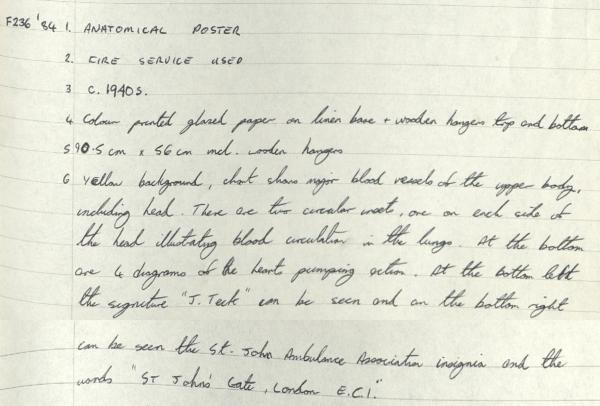 F236 '84 1. ANATOMICAL POSTER
2. FIRE SERVICE USED
3 C. 1940s.
4 Colour printed glazed paper on linen base + wooden hangers top and bottom
5 90.5 cm x 56 cm incl. wooden hangers
6 Yellow background, chart shows major blood vessels of the upper body,
including head. There are two circular insets, one on each side of
the head illustrating blood circulation in the lungs. At the bottom
are 4 diagrams of the hearts pumping action. At the bottom left
the signature "J. Teck" can be seen and on the bottom right
can be seen the St. John Ambulance Association insignia and the
words "ST John's Gate, London E.C.1."